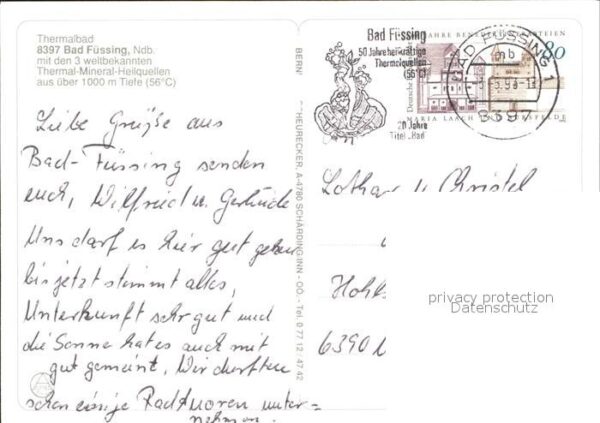 Thermalbad
8397 Bad Füssing, Ndb.
mit den 3 weltbekannten
Thermal-Mineral-Heilquellen
aus über 1000 m Tiefe (56°C)
Liebe Grüße aus
Bad-Füssing senden
euch, Wilfried u. Gertrude
Uns darf es hier gut gehen
bis jetzt stimmt alles,
Unterkunft sehr gut und
die Sonne hat es auch mit
gut gemeint, Wir durften
schon einige Radtouren unter=
nehmen.
HEURECKER, A-4780 SCHÄRDING/INN - OÖ. - Tel. 0 77 12 / 47 42
Bad Füssing
50 Jahre heilkräftige
Thermalquellen
(56°C)
20 Jahre
Titel "Bad"
JAHRE BENEDIKTINERABTEIEN
80
MARIA LAACH UND BURSFELDE
Deutsche
BAD FÜSSING 1
mb
8397
Lothar u. Christel
6390
privacy protection
Datenschutz